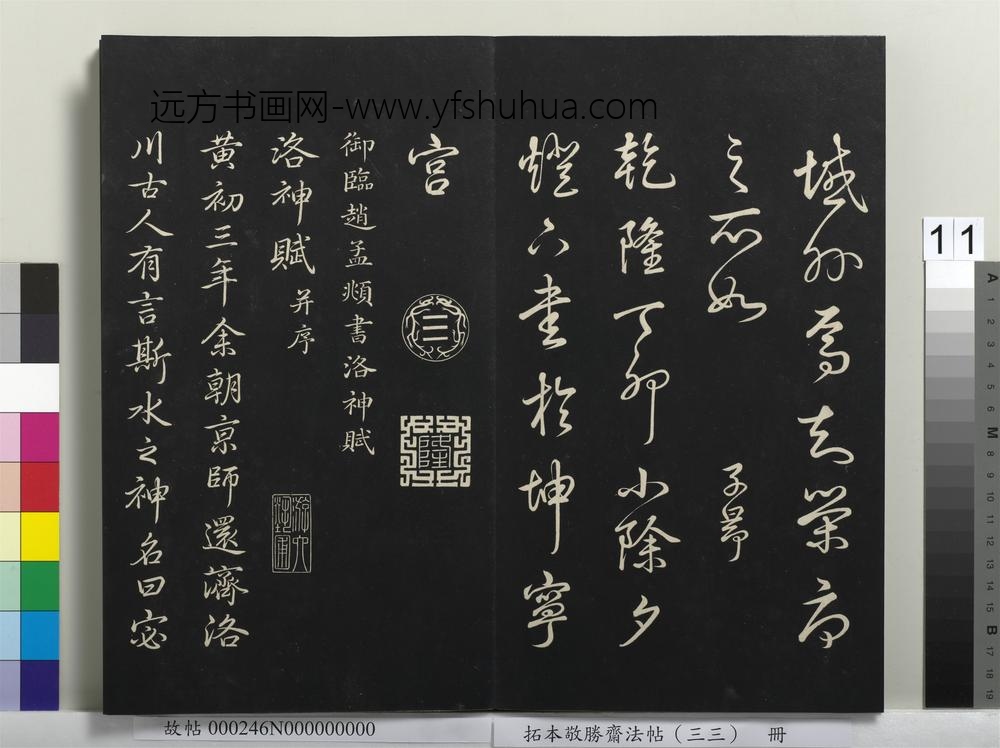 远方书画网-www.yfshuhua.com
域外焉知榮辱
之所如 子昂
乾隆丁卯小除夕
燈下書於坤寧
宮
御臨趙孟頫書洛神賦
洛神賦 并序
黄初三年余朝京師還濟洛
川古人有言斯水之神名曰宓
11
A
1
2
3
4
5
6
M
8
9
10
11
12
13
14
15
B
17
18
19
故帖 000246N000000000
拓本敬勝齋法帖（三三） 冊